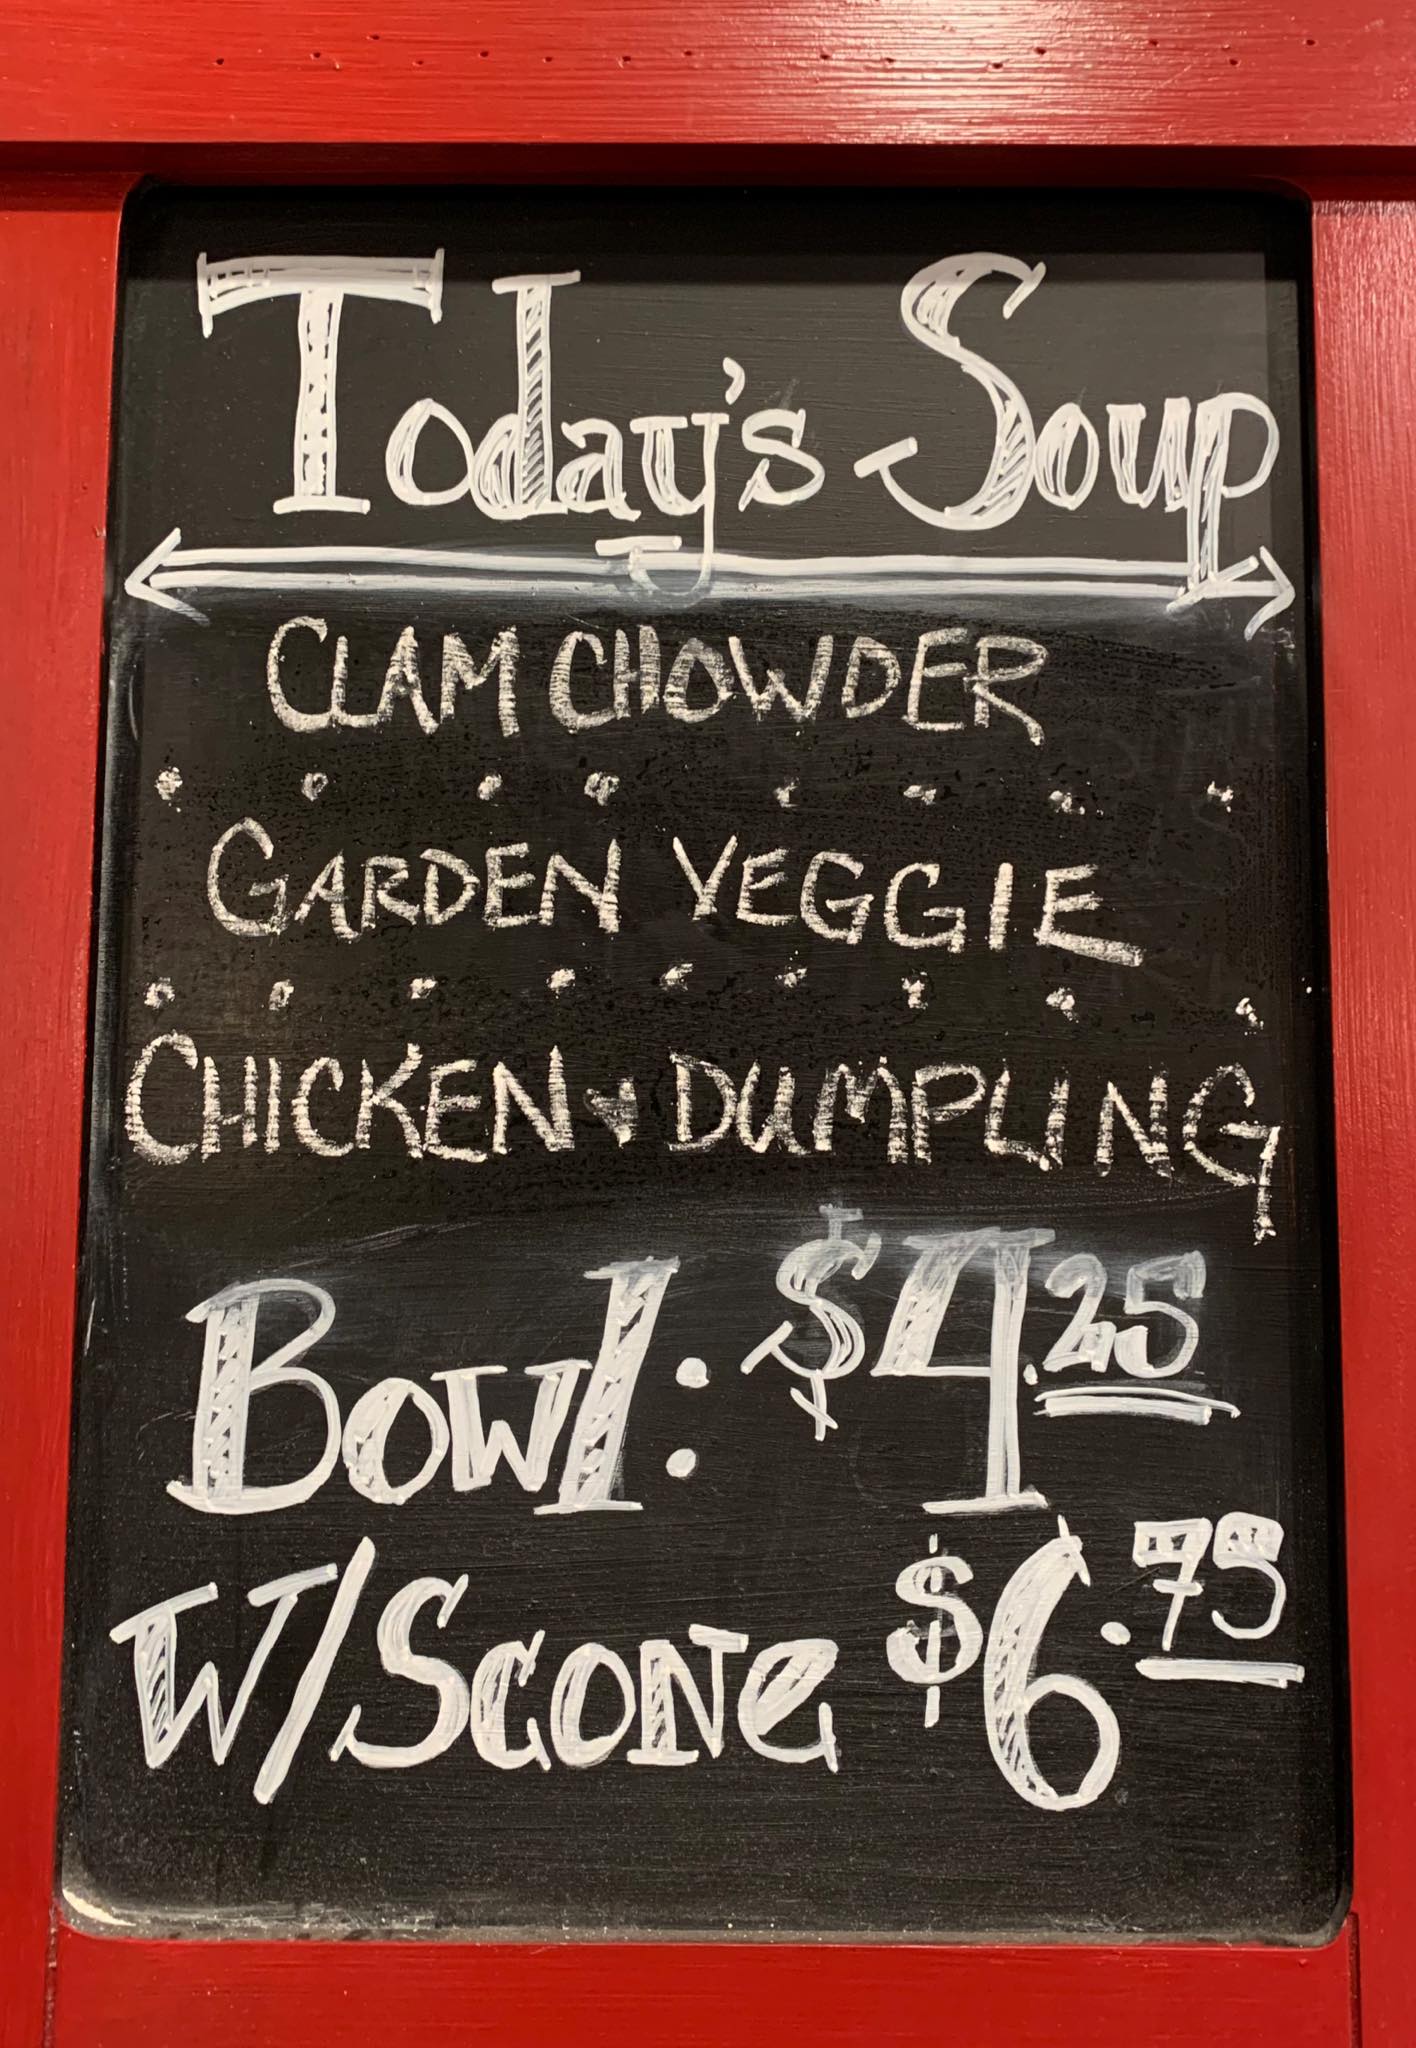 Today's Soup
CLAM CHOWDER
GARDEN VEGGIE
CHICKEN ♥ DUMPLING
Bowl: $4.25
W/Scone $6.75